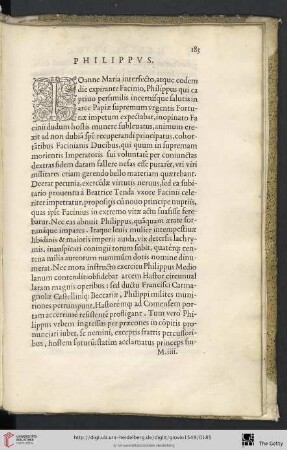 183
PHILIPPVS.
IOanne Maria interfecto, atque eodem
die expirante Facinio, Philippus qui ca
ptiuo persimilis incertusque salutis in
arce Papiæ supremum vrgentis Fortu-
næ impetum expectabat, inopinato Fa
cinii dudum hostis munere subleuatus, animum ere-
xit ad non dubiā spē recuperandi principatus, cohor-
tātibus Facinianis Ducibus, qui quum in supremum
morientis Imperatoris sui voluntatē per coniunctas
dextras fidem datam fallere nefas esse putarēt, vti viri
militares etiam gerendo bello materiam quærebant.
Deerat pecunia, exercēdæ virtutis neruus, sed ea subi-
tario prouentu à Beatrice Tenda vxore Facinii cele-
riter impetratur, propositis cū nouo principe nuptiis,
quas ipse Facinius in extremo vitæ actu suasisse fere-
batur. Nec eas abnuit Philippus, quāquam ætate for-
māque impares. Itaque leuis mulier intempestiuæ
libidinis & maioris imperii auida, vix detersis lachry-
mis, inauspicati coniugii torum subiit, quaterq́; cen-
tena milia aureorum nummûm dotis nomine dinu-
merat. Nec mora instructo exercitu Philippus Medio
lanum contendit: obsidebat arcem Hastor circumual
latam magnis operibus: sed ductu Francisci Carma-
gnolæ Castelliniq; Beccariæ, Philippi milites muni-
tiones perrumpunt, Hastoremq; ad Comensem por-
tam acerrimè resistentē profligant. Tum verò Phi-
lippus vrbem ingressus per præcones in cōpitis pro-
nunciari iubet, se nemini, exceptis fratris percussori-
bus, hostem futurū: statim acclamatus princeps su-
M.iiii.
http://digi.ub.uni-heidelberg.de/diglit/giovio1549/0185
© Universitätsbibliothek Heidelberg
UNIVERSITÄTS-
BIBLIOTHEK
HEIDELBERG
The Getty